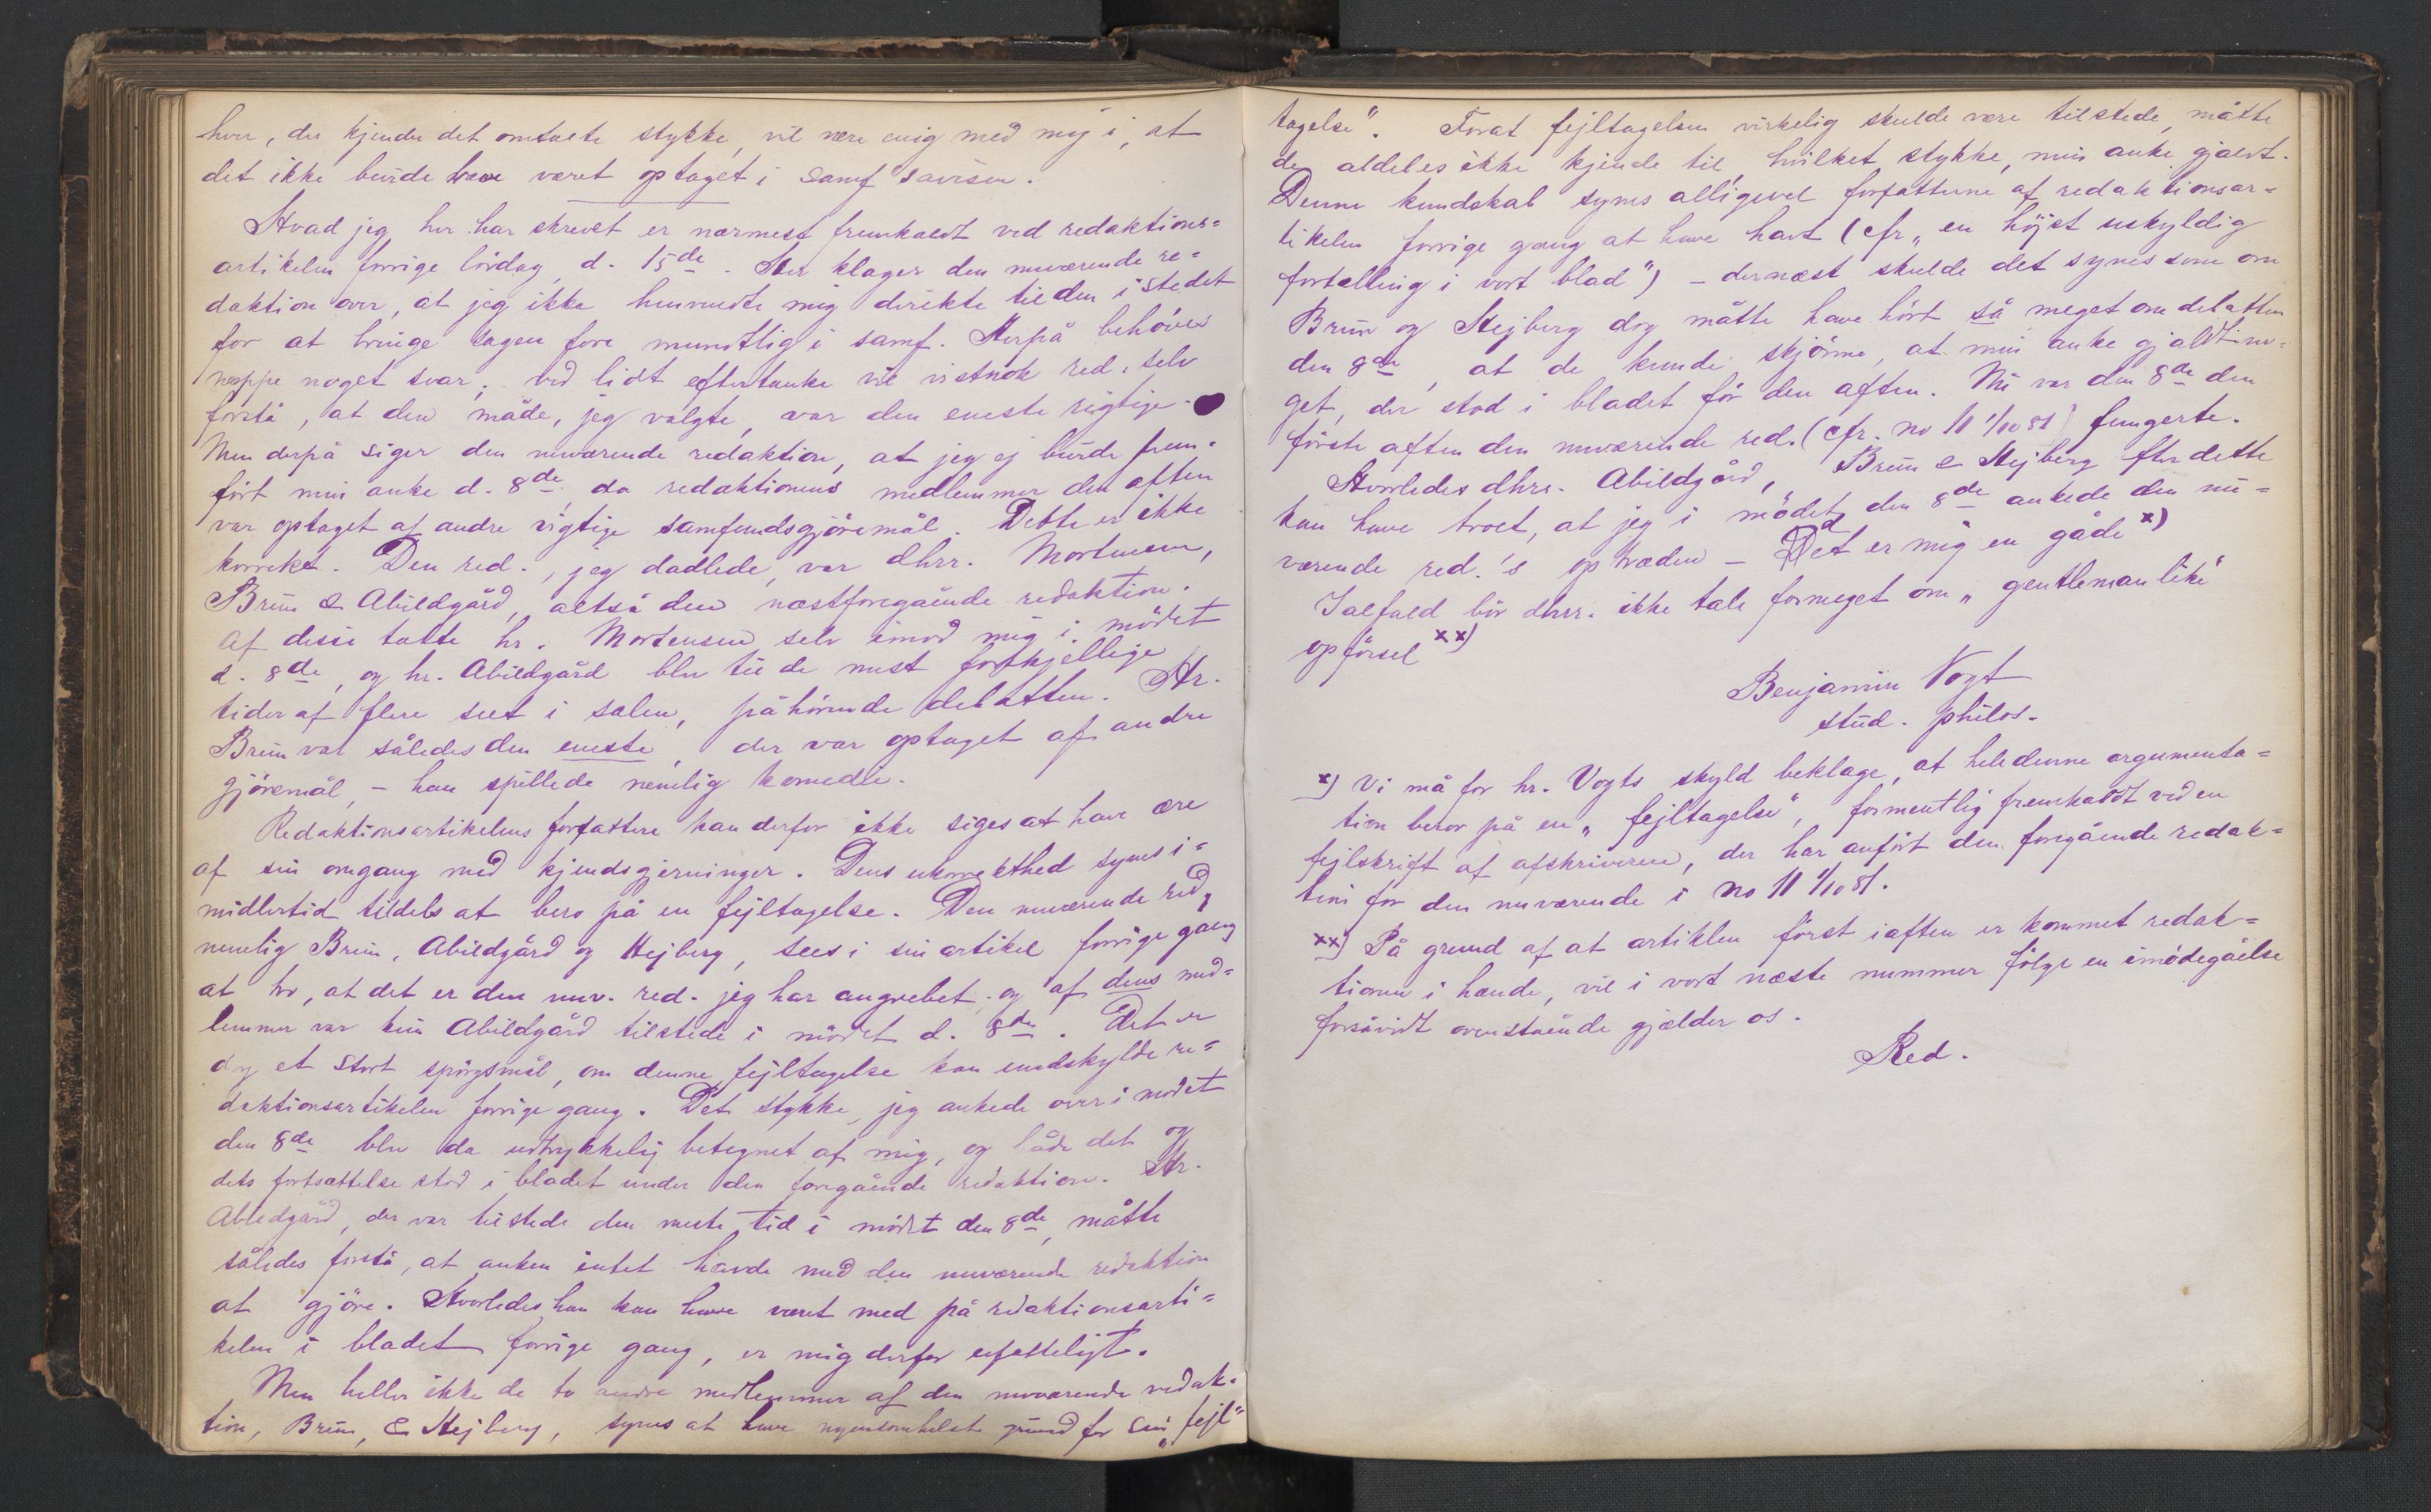 hver, der kjender det omtalte stykke, vil være enig med mig i, at
det ikke burde have været optaget i samf'savisen.
Hvad jeg her har skrevet er nærmest fremkaldt ved redaktions=
artikelen forrige lördag, d. 15de. Her klager den nuværende re=
daktion over, at jeg ikke henvendte mig direkte til den i stedet
for at bringe sagen fore mundtlig i samf. Herpå behöves
neppe noget svar; ved lidt eftertanke vil vistnok red. selv
forstå, at den måde, jeg valgte, var den eneste rigtige.
Men derpå siger den nuværende redaktion, at jeg ej burde frem=
fört min anke d. 8de, da redaktionens medlemmer den aften
var optaget af andre vigtige samfundsgjöremål. Dette er ikke
korrekt. Den red., jeg dadlede, var dhrr. Mortensen,
Bruun & Abildgård, altså den næstforegående redaktion.
Af disse talte hr. Mortensen selv imod mig i mödet
d. 8de, og hr. Abildgård blev til de mest forskjellige
tider af flere seet i salen, påhörende debatten. Hr.
Bruun var således den eneste, der var optaget af andre
gjöremål, – han spillede nemlig komedie.
Redaktionsartikelens forfattere kan derfor ikke siges at have ære
af sin omgang med kjendsgjerninger. Dens ukorrekthed synes i=
midlertid tildels at bero på en fejltagelse. Den nuværende red,
nemlig Bruun, Abildgård og Hejberg, sees i sin artikel forrige gang
at tro, at det er den nuv. red. jeg har angrebet, og af dens med=
lemmer var kun Abildgård tilstede i mödet d. 8de. Det er
dog et stort spörgsmål, om denne fejltagelse kan undskylde re=
daktionsartikelen forrige gang. Det stykke, jeg ankede over i mödet
den 8de blev da udtrykkelig betegnet af mig, og både det og
dets fortsættelse stod i bladet under den foregående redaktion. Hr.
Abildgård, der var tilstede den meste tid i mödet den 8de, måtte
således forstå, at anken intet havde med den nuværende redaktion
at gjöre. Hvorledes han kan have været med på redaktionsarti=
kelen i bladet forrige gang, er mig derfor ufatteligt.
Men heller ikke de to andre medlemmer af den nuværende redak=
tion, Bruun, & Hejberg, synes at have nogensomhelst grund for sin „fejl=
tagelse". Forat fejltagelsen virkelig skulde være tilstede, måtte
de aldeles ikke kjende til, hvilket stykke, min anke gjaldt.
Denne kundskab synes alligevel forfatterne af redaktionsar=
tikelen forrige gang at have havt (cfr „en höjst uskyldig
fortælling i vort blad") – dernæst skulde det synes som om
Bruun og Hejberg dog måtte have hört så meget om debatten
den 8de, at de kunde skjönne, at min anke gjaldt no=
get, der stod i bladet för den aften. Nu var den 8de den
förste aften den nuværende red. (cfr. no 11 1/10 81) fungerte.
Hvorledes dhrr. Abildgård, Bruun & Hejberg efter dette
kan have troet, at jeg i mödet den 8de ankede den nu=
værende red.'s optræden – det er mig en gåde x)
Ialfald bör dhrr. ikke tale formeget om „gentlemanlike"
opförsel xx)
Benjamin Vogt
stud. philos.
x) Vi må for hr. Vogts skyld beklage, at hele denne argumenta=
tion beror på en „fejltagelse", formentlig fremkaldt ved en
fejlskrift af afskriveren, der har anfört den foregående redak=
tion for den nuværende i no 11 1/10 81.
xx) På grund af at artiklen först iaften er kommet redak=
tionen i hænde, vil i vort næste nummer fölge en imödegåelse
forsåvidt ovenstående gjælder os.
Red.